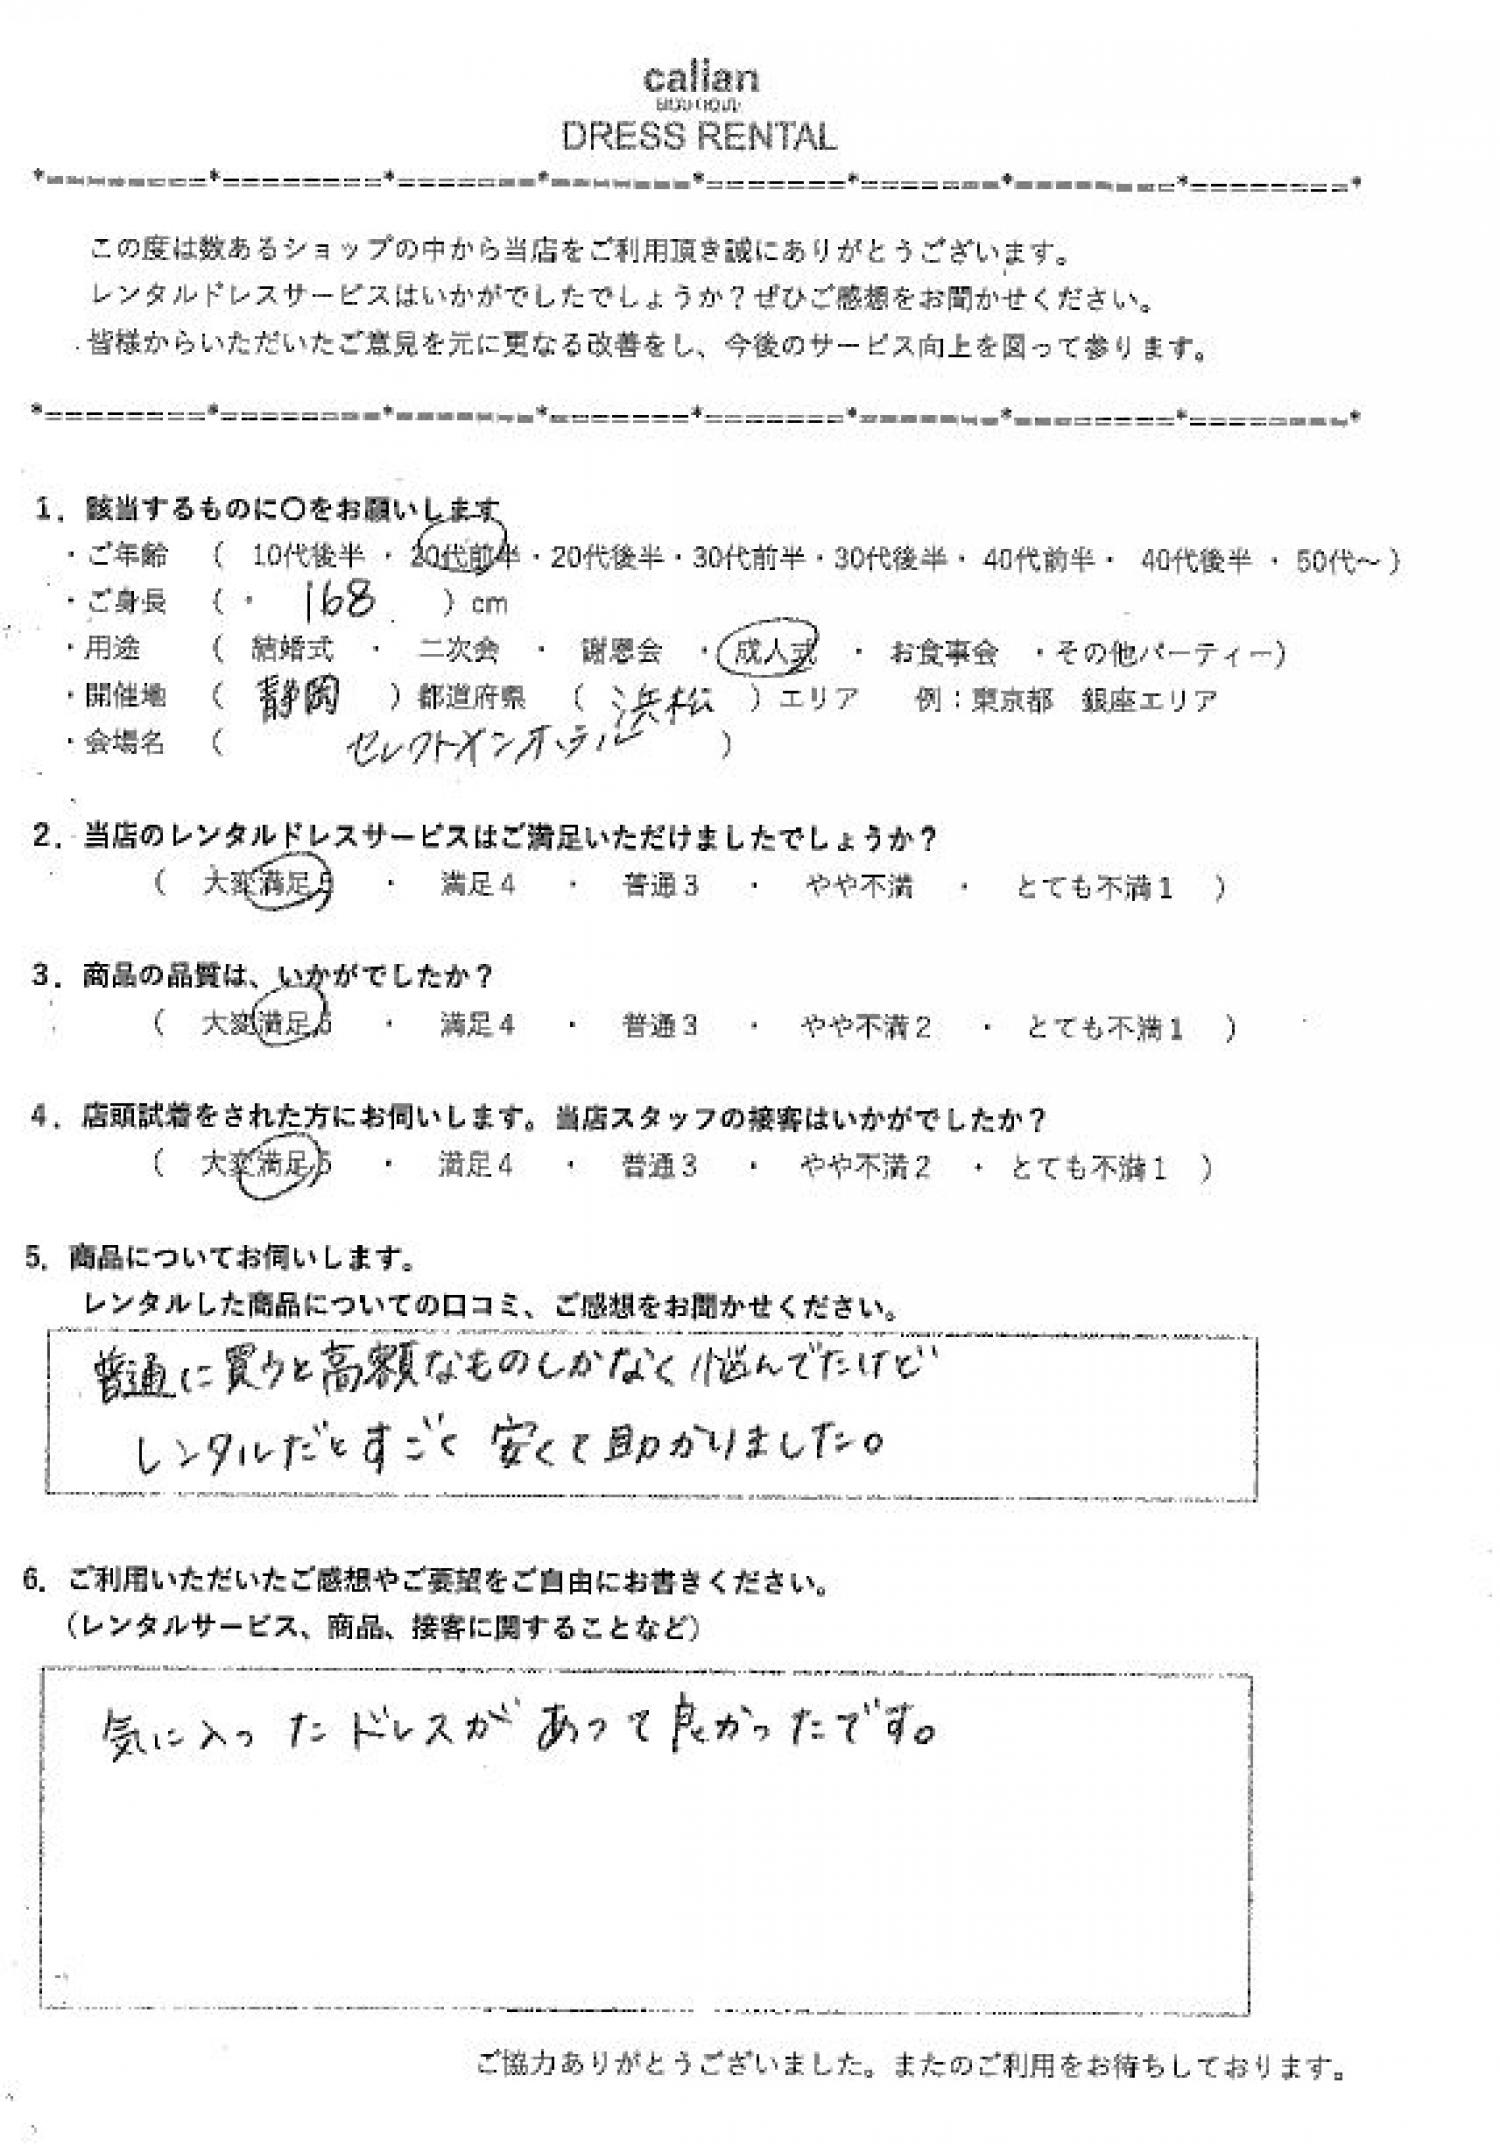 calian
DRESS RENTAL
*=========*=========*========*========*========*========*=========*=========*
この度は数あるショップの中から当店をご利用頂き誠にありがとうございます。
レンタルドレスサービスはいかがでしたでしょうか？ぜひご感想をお聞かせください。
皆様からいただいたご意見を元に更なる改善をし、今後のサービス向上を図って参ります。
*=========*=========*========*========*========*========*=========*=========*
1．該当するものに〇をお願いします
・ご年齢 （ 10代後半 ・ 20代前半・20代後半・30代前半・30代後半・ 40代前半・ 40代後半 ・ 50代～）
・ご身長 （・ 168 ）cm
・用途 （ 結婚式 ・ 二次会 ・ 謝恩会 ・ 成人式 ・ お食事会 ・その他パーティー）
・開催地 （ 静岡 ）都道府県 （ 浜松 ）エリア 例：東京都 銀座エリア
・会場名 （ セレクトインホテル ）
2．当店のレンタルドレスサービスはご満足いただけましたでしょうか？
（ 大変満足5 ・ 満足4 ・ 普通3 ・ やや不満 ・ とても不満1 ）
3．商品の品質は、いかがでしたか？
（ 大変満足5 ・ 満足4 ・ 普通3 ・ やや不満2 ・ とても不満1 ）
4．店頭試着をされた方にお伺いします。当店スタッフの接客はいかがでしたか？
（ 大変満足5 ・ 満足4 ・ 普通3 ・ やや不満2 ・とても不満1 ）
5．商品についてお伺いします。
レンタルした商品についての口コミ、ご感想をお聞かせください。
普通に買うと高額なものしかなく悩んでたけど
レンタルだとすごく安くて助かりました。
6．ご利用いただいたご感想やご要望をご自由にお書きください。
（レンタルサービス、商品、接客に関することなど）
気に入ったドレスがあって良かったです。
ご協力ありがとうございました。またのご利用をお待ちしております。